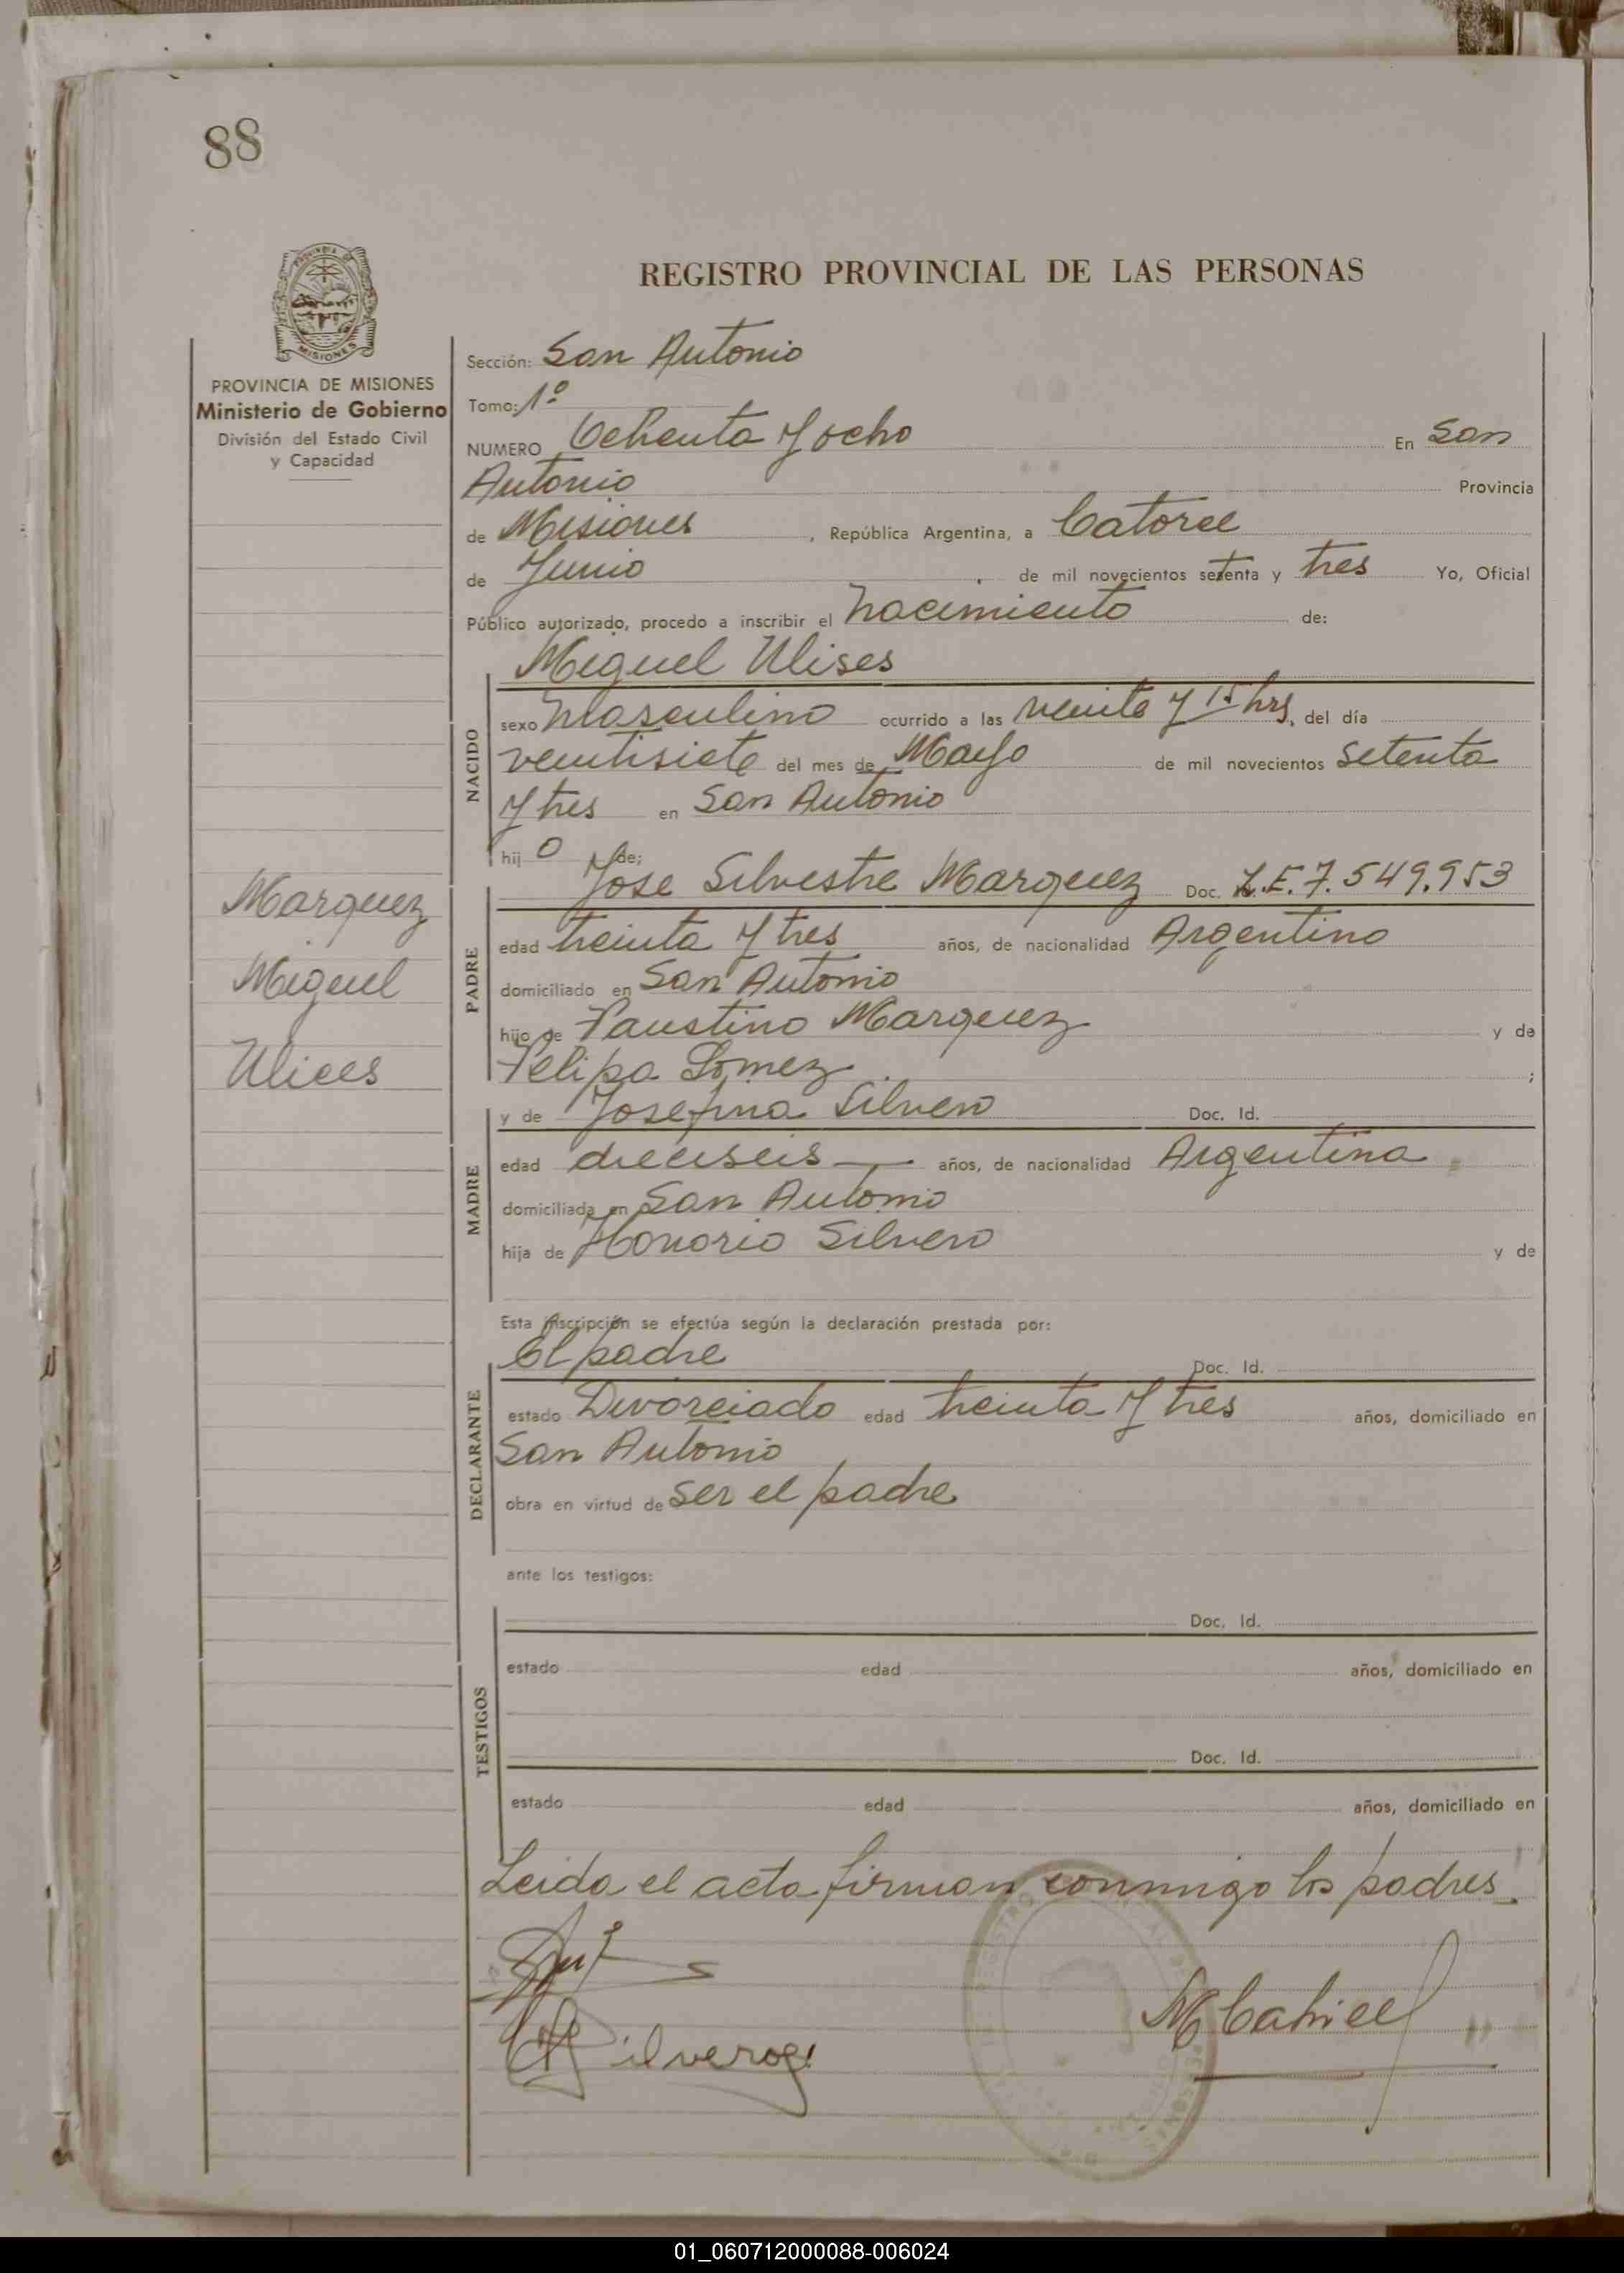 88
PROVINCIA DE MISIONES
Ministerio de Gobierno
División del Estado Civil
y Capacidad
Marquez
Miguel
Ulices
REGISTRO PROVINCIAL DE LAS PERSONAS
Sección: San Antonio
Tomo: 1º
NUMERO Ochenta y ocho En San
Antonio Provincia
de Misiones, República Argentina, a Catorce
de Junio, de mil novecientos setenta y tres Yo, Oficial
Público autorizado, procedo a inscribir el nacimiento de:
Miguel Ulises
NACIDO
sexo masculino ocurrido a las veinte y 15 hrs, del día
veintisiete del mes de Mayo de mil novecientos setenta
y tres en San Antonio
hij o de:
Jose Silvestre Marquez Doc. L.E. 7.549.953
PADRE
edad treinta y tres años, de nacionalidad Argentino
domiciliado en San Antonio
hijo de Faustino Marquez y de
Felipa Gomez ;
y de Josefina Silvero Doc. Id.
MADRE
edad dieciseis años, de nacionalidad Argentina
domiciliada en San Antonio
hija de Honorio Silvero y de
Esta inscripción se efectúa según la declaración prestada por:
El padre Doc. Id.
DECLARANTE
estado Divorciado edad treinta y tres años, domiciliado en
San Antonio
obra en virtud de ser el padre
ante los testigos:
Doc. Id.
TESTIGOS
estado edad años, domiciliado en
Doc. Id.
estado edad años, domiciliado en
Leida el acta firman conmigo los padres.
01_060712000088-006024